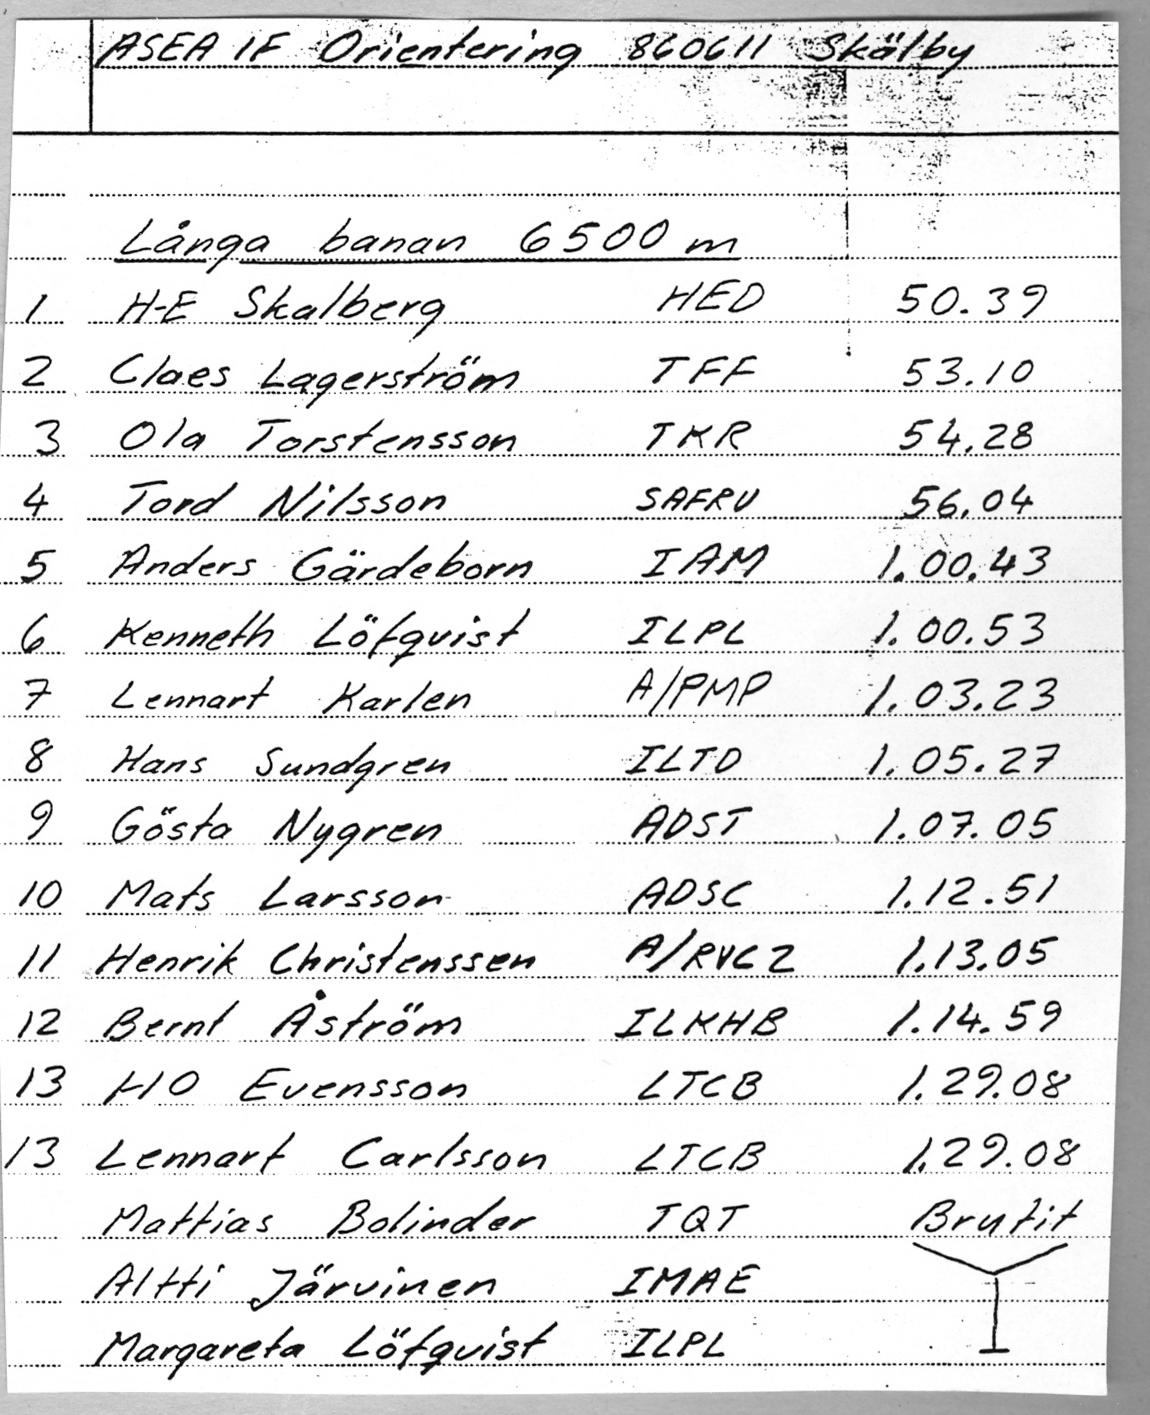 ASEA IF Orientering 860611 Skälby
Långa banan 6500 m
1 H-E Skalberg HED 50.39
2 Claes Lagerström TFF 53.10
3 Ola Torstensson TKR 54.28
4 Tord Nilsson SAFRU 56.04
5 Anders Gärdeborn IAM 1.00.43
6 Kenneth Löfquist ILPL 1.00.53
7 Lennart Karlen A/PMP 1.03.23
8 Hans Sundgren ILTD 1.05.27
9 Gösta Nygren ADST 1.07.05
10 Mats Larsson ADSC 1.12.51
11 Henrik Christenssen A/RVC2 1.13.05
12 Bernt Åström ILKHB 1.14.59
13 HO Evensson LTCB 1.29.08
13 Lennart Carlsson LTCB 1.29.08
Mattias Bolinder TQT Brutit
Altti Järvinen IMAE
Margareta Löfquist ILPL